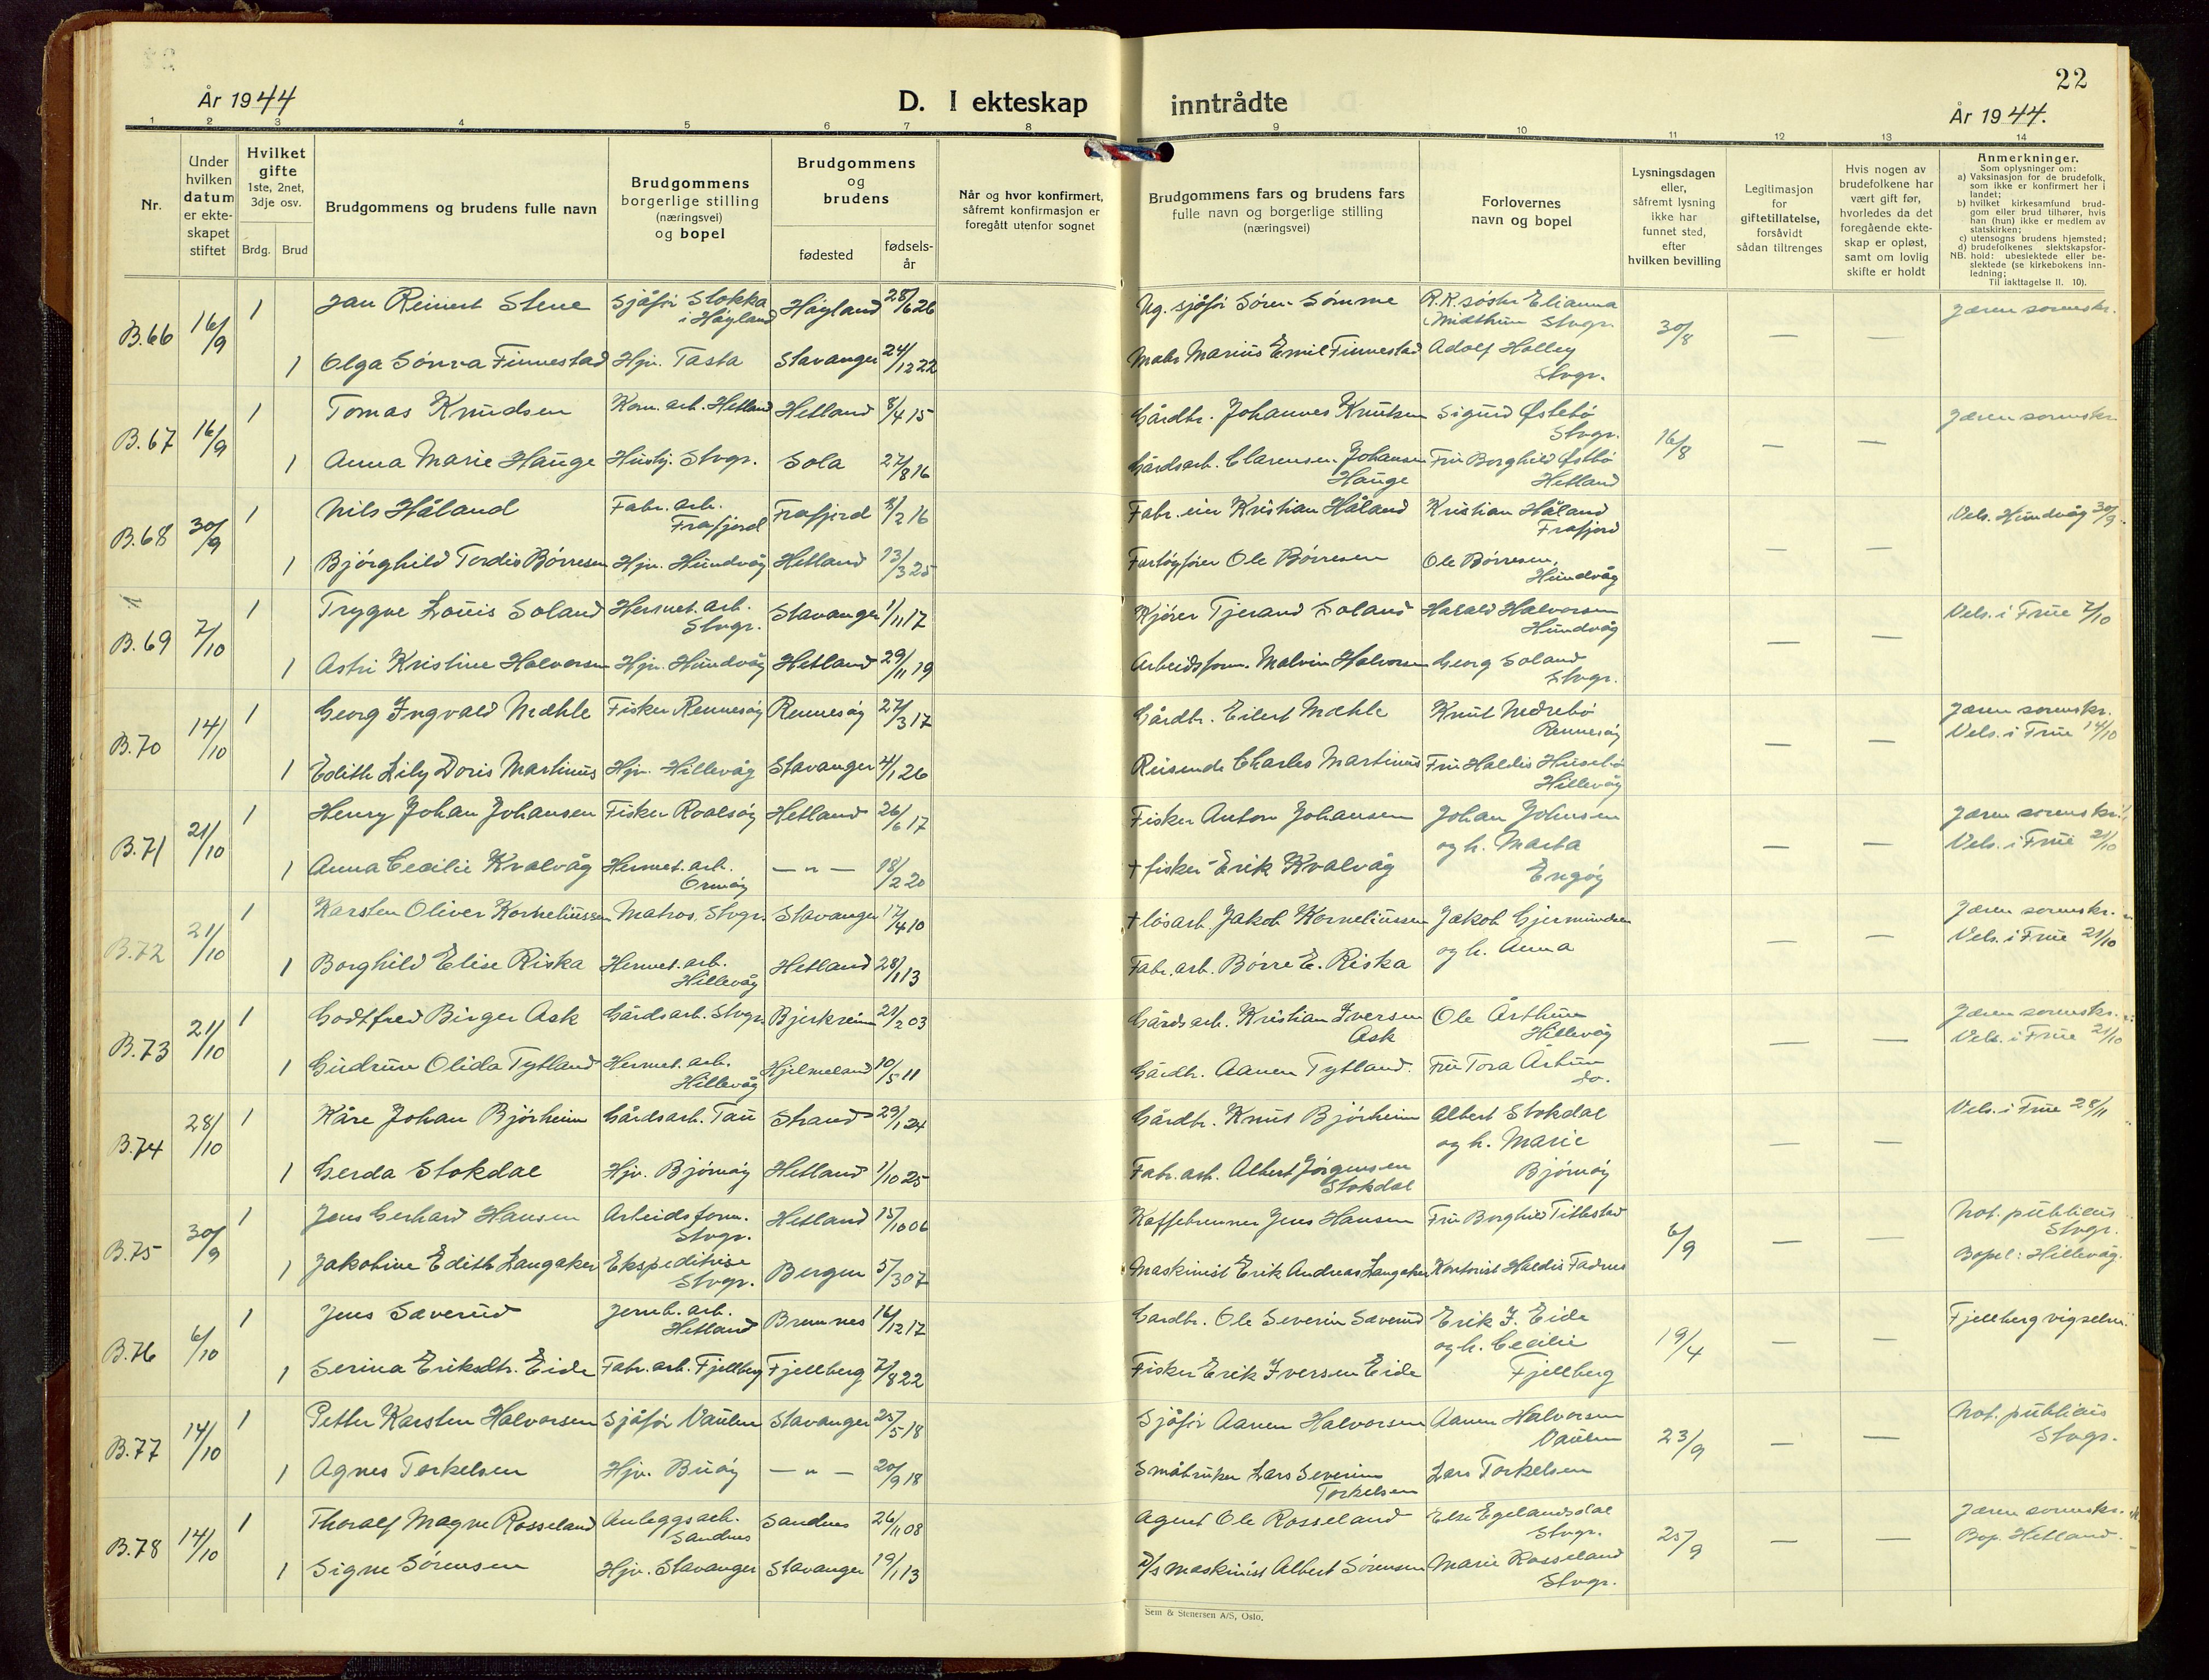 22
År 1944
D. I ekteskap inntrådte
År 1944.
1 2 3 4 5 6 7 8 9 10 11 12 13 14
Nr.
Under hvilken datum er ekte-skapet stiftet
Hvilket gifte
1ste, 2net, 3dje osv.
Brdg. Brud
Brudgommens og brudens fulle navn
Brudgommens borgerlige stilling (næringsvei) og bopel
Brudgommens og brudens
fødested
fødsels-år
Når og hvor konfirmert, såfremt konfirmasjon er foregått utenfor sognet
Brudgommens fars og brudens fars fulle navn og borgerlige stilling (næringsvei)
Forlovernes navn og bopel
Lysningsdagen eller, såfremt lysning ikke har funnet sted, efter hvilken bevilling
Legitimasjon for giftetillatelse, forsåvidt sådan tiltrenges
Hvis nogen av brudefolkene har vært gift før, hvorledes da det foregående ekte-skap er opløst, samt om lovlig skifte er holdt
Anmerkninger.
Som oplysninger om:
a) Vaksinasjon for de brudefolk, som ikke er konfirmert her i landet;
b) hvilket kirkesamfund brud-gom eller brud tilhører, hvis han (hun) ikke er medlem av statskirken;
c) utensogns brudens hjemsted;
d) brudefolkenes slektskapsfor-hold: ubeslektede eller be-slektede (se kirkebokens inn-ledning;
NB.
Til iakttagelse II. 10).
B.66 16/9 1 Jan Reinert Stene Sjåfør Stokka i Høyland Høyland 28/6 26 Ug. sjåfør Sören Sömme R.K. søster Elianna Midthun Stvgr. 30/8 — — Jæren sorenskr.
1 Olga Sönva Finnestad Hjv. Tasta Stavanger 24/12 22 Marius Emil Finnestad Adolf Holley Stvgr.
B.67 16/9 1 Tomas Knudsen Kom. arb. Hetland Hetland 8/4 15 Gårdbr. Johannes Knutsen Sigurd Østebö Stvgr. 16/8 — — Jæren sorenskr.
1 Anna Marie Hauge Hushj. Stvgr. Sola 27/8 16 Gårdsarb. Clarensen Johansen Hauge Fru Borghild Østbö Hetland
B.68 30/9 1 Nils Håland Fabr. arb. Frafjord Frafjord 8/2 16 Fabr. eier Kristian Håland Kristian Håland Frafjord — — Vels. Hundvåg 30/9.
1 Bjørghild Tordis Børresen Hjv. Hundvåg Hetland 13/3 25 Fartøyfører Ole Børresen Ole Børresen, Hundvåg
B.69 7/10 1 Trygve Louis Soland Hermet. arb. Stvgr. Stavanger 1/11 17 Kjører Tjerand Soland Harald Halvorsen Hundvåg — — Vels. i Frue 7/10
1 Astri Kristine Halvorsen Hjv. Hundvåg Hetland 29/11 19 Arbeidsform. Malvin Halvorsen Georg Soland Stvgr.
B.70 14/10 1 Georg Ingvald Mæhle Fisker Rennesøy Rennesøy 27/3 17 Gårdbr. Eilert Mæhle Knut Nedrebö Rennesøy — — Jæren sorenskr. Vels. i Frue 14/10
1 Edith Lily Doris Martinus Hjv. Hillevåg Stavanger 4/1 26 Reisende Charles Martinus Fru Haldis Husebö Hillevåg
B.71 21/10 1 Henry Johan Johansen Fisker Roalsøy Hetland 26/6 17 Fisker Anton Johansen Johan Johnsen og h. Marta Engøy — — Jæren sorenskr. Vels. i Frue 21/10
1 Anna Cecilie Kvalvåg Hermet. arb. Ormøy — " — 18/2 20 † fisker Erik Kvalvåg
B.72 21/10 1 Karsten Oliver Korneliussen Matros. Stvgr. Stavanger 17/4 10 † løsarb. Jakob Korneliussen Jakob Gjermundsen og h. Anna — — Jæren sorenskr. Vels. i Frue 21/10
1 Borghild Elise Riska Hermet. arb. Hillevåg Hetland 28/1 13 Fabr. arb. Börre E. Riska
B.73 21/10 1 Godtfred Birger Ask Gårdsarb. Stvgr. Bjerkreim 21/2 03 Gårdsarb. Kristian Iversen Ask Ole Årthun Hillevåg — — Jæren sorenskr. Vels. i Frue 21/10
1 Gudrun Olida Tytland Hermet. arb. Hillevåg Hjelmeland 10/5 11 Gårdbr. Aanen Tytland. Fru Tora Årtun do.
B.74 28/10 1 Kåre Johan Bjørheim Gårdsarb. Tau Strand 29/1 24 Gårdbr. Knut Bjørheim Albert Stokdal og h. Marie Bjørnøy — — Vels. i Frue 28/11
1 Gerda Stokdal Hjv. Bjørnøy Hetland 1/10 25 Fabr. arb. Albert Jørgensen Stokdal
B.75 30/9 1 Jens Gerhard Hansen Arbeidsform. Stvgr. Hetland 15/10 06 Kaffebrenner Jens Hansen Fru Borghild Tittestad 6/9 — — Not. publicus Stvgr. Bopel: Hillevåg.
1 Jakobine Edith Langaker Ekspeditrise Stvgr. Bergen 5/3 07 Maskinist Erik Andreas Langaker Kontorist Haldis Fadnes
B.76 6/10 1 Jens Sæverud Jernb. arb. Hetland Bremnes 16/12 17 Gardbr. Ole Severin Sæverud Erik J. Eide og h. Cecilie Fjellberg 19/4 — — Fjellberg vigselsr.
1 Serina Eriksdtr. Eide Fabr. arb. Fjellberg Fjellberg 7/8 22 Fisker Erik Iversen Eide
B.77 14/10 1 Petter Karsten Halvorsen Sjåfør Vaulen Stavanger 25/5 18 Sjåfør Aanen Halvorsen Aanen Halvorsen Vaulen 23/9 — — Not. publicus Stvgr.
1 Agnes Torkelsen Hjv. Buøy — " — 20/9 18 Småbruker Lars Severin Torkelsen Lars Torkelsen
B.78 14/10 1 Thoralf Magne Rosseland Anleggsarb. Sandnes Sandnes 26/11 08 Agent Ole Rosseland Else Egelandsdal Stvgr. 25/9 — — Jæren sorenskr. Bop. Hetland.
1 Signe Sørensen Hjv. Stavanger Stavanger 19/1 13 D/s maskinist Albert Sørensen Marie Rosseland Stvgr.
Sem & Stenersen A/S, Oslo.